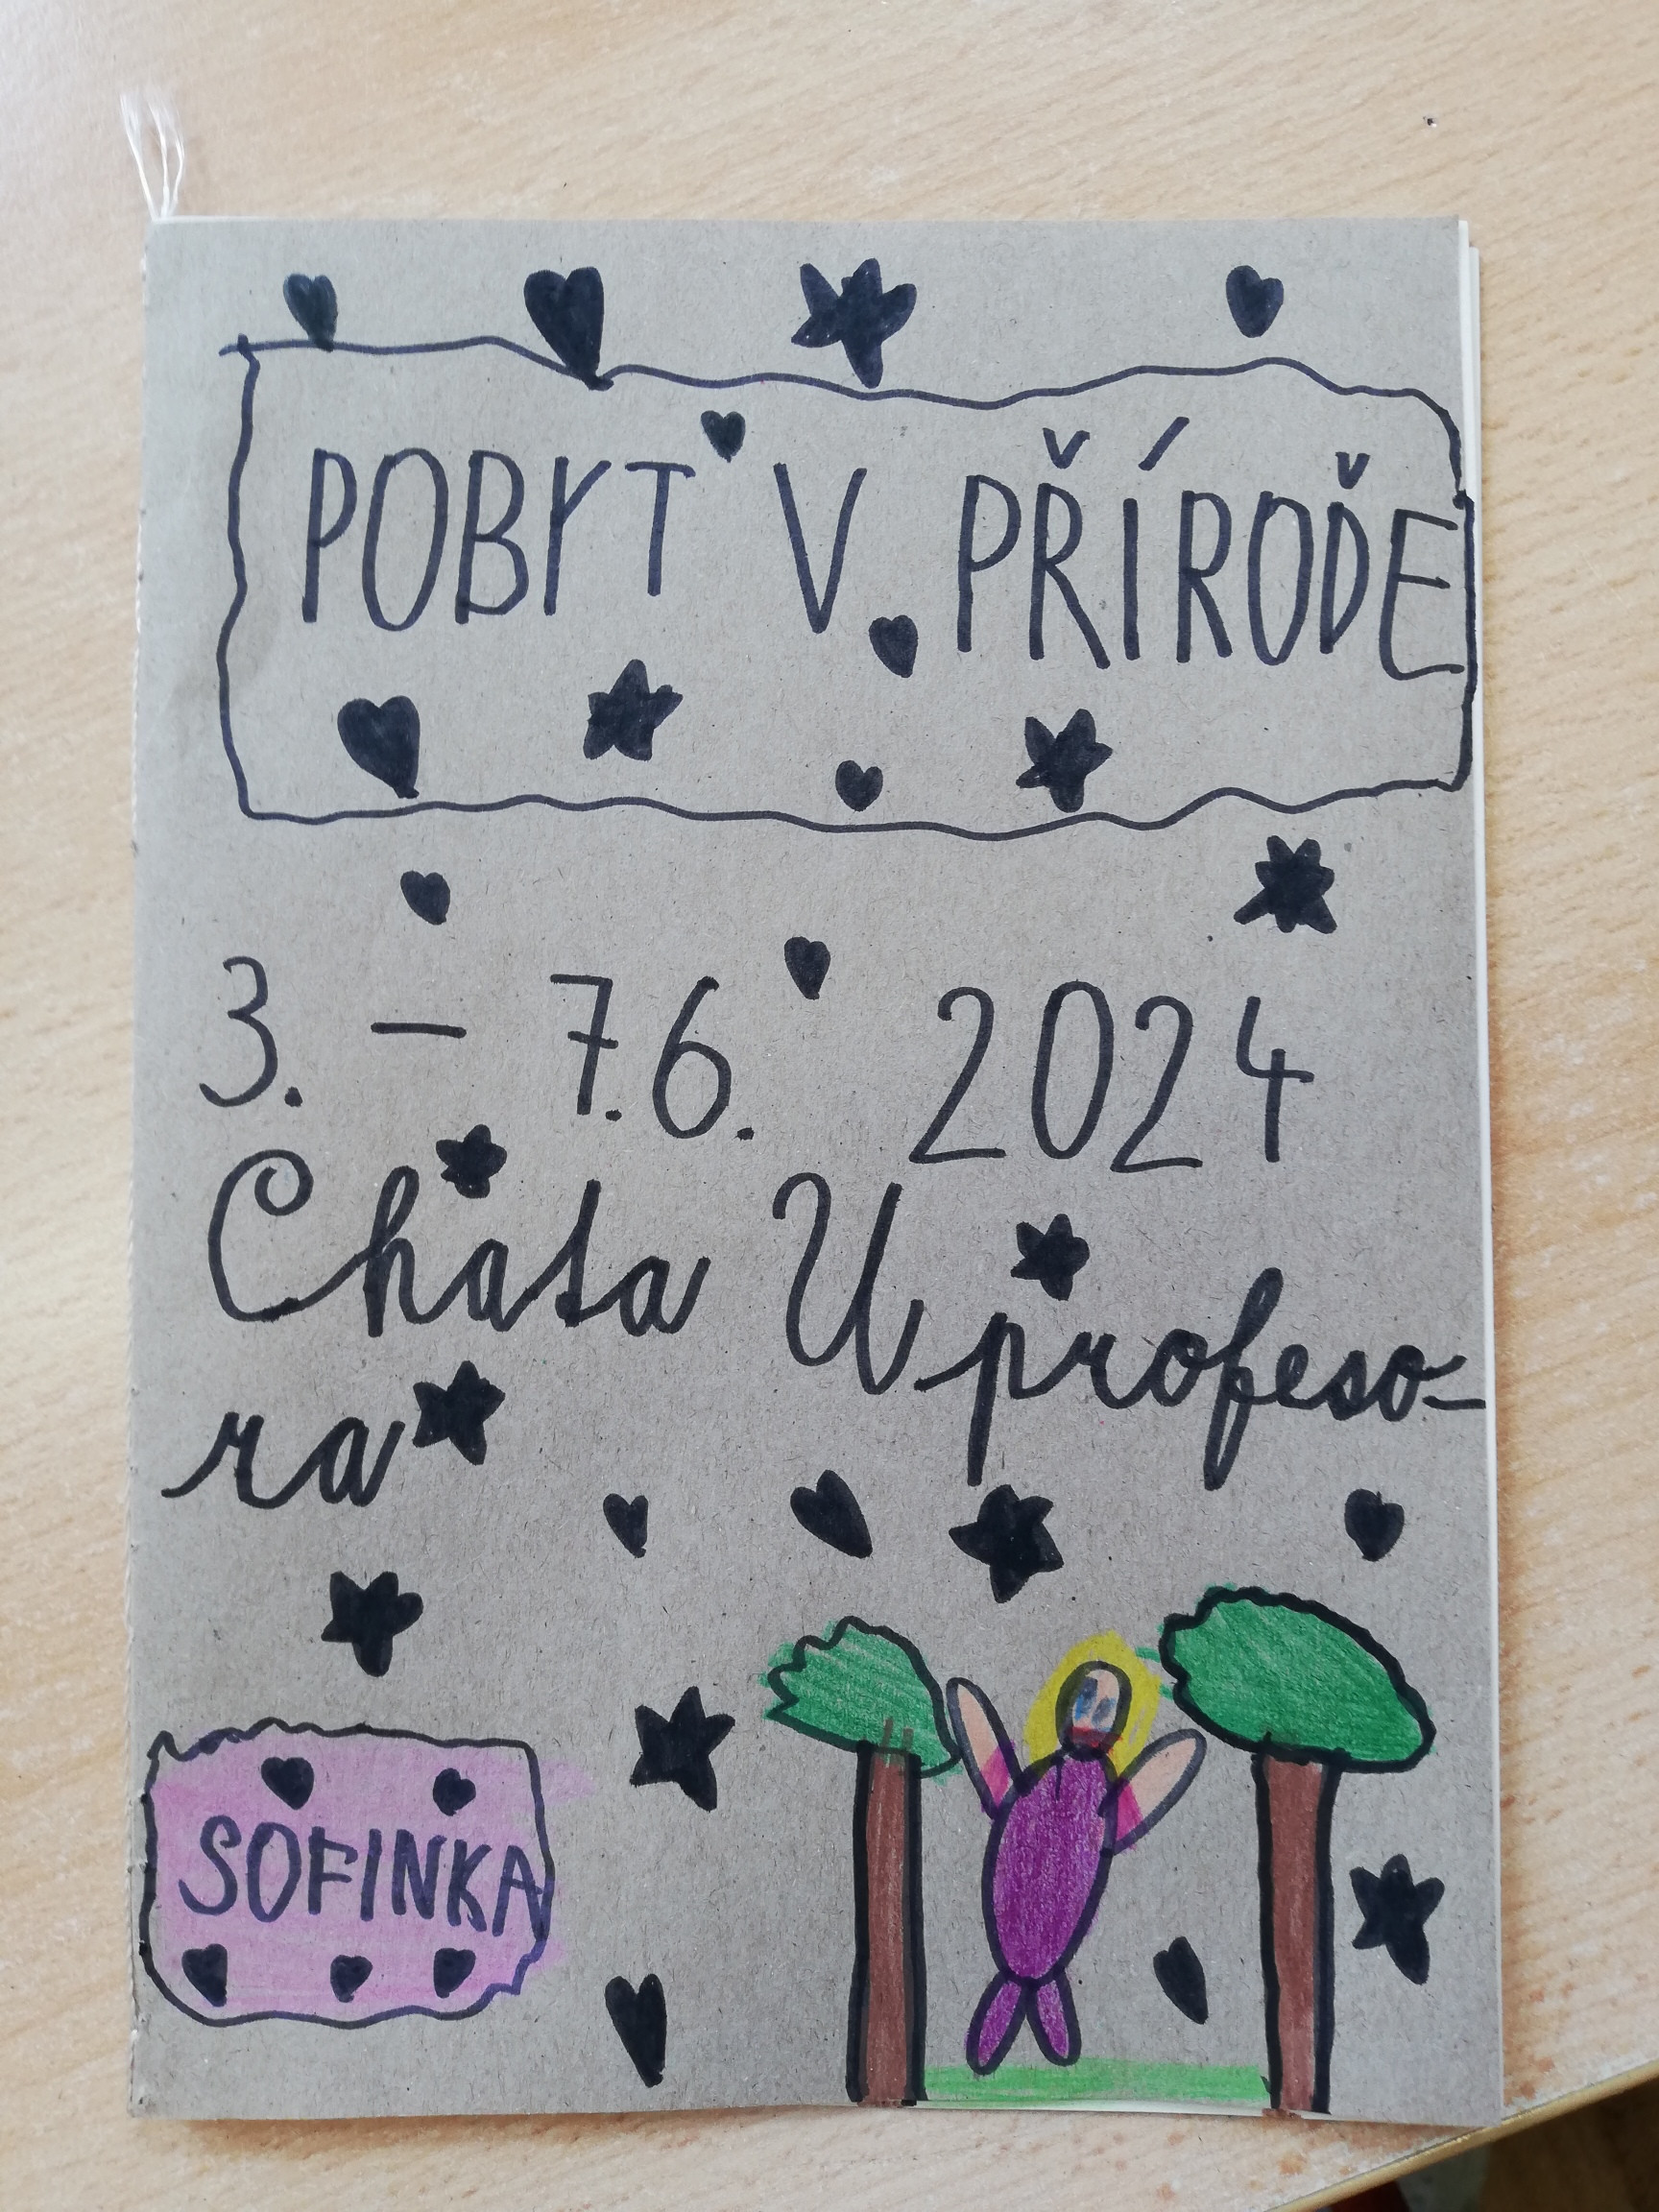 POBYT V PŘÍRODĚ
3. - 7.6. 2024
Chata U profeso-
ra
SOFINKA